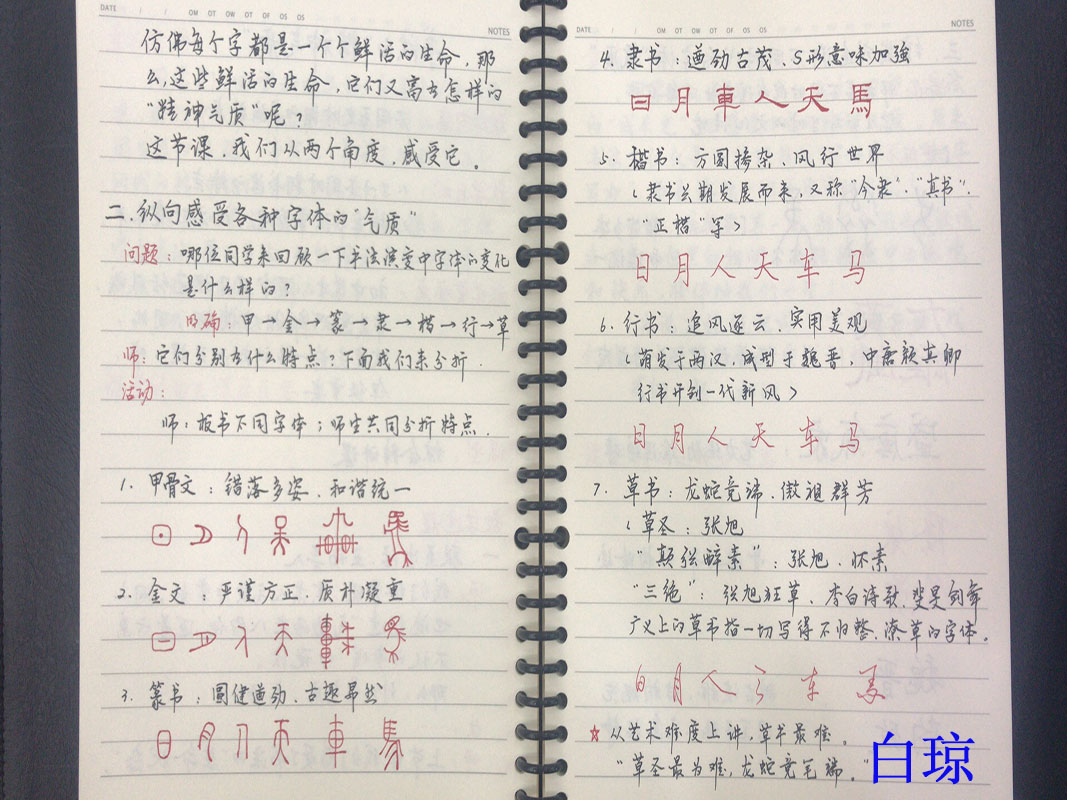 DATE
OM OT OW OT OF OS OS
NOTES
仿佛每个字都是一个个鲜活的生命，那
么，这些鲜活的生命，它们又富有怎样的
“精神气质”呢？
这节课，我们从两个角度，感受它。
二、纵向感受各种字体的“气质”
问题：哪位同学来回顾一下书法演变中字体的变化
是什么样的？
明确：甲→金→篆→隶→楷→行→草
师：它们分别有什么特点？下面我们来分析．
活动：
师：板书不同字体；师生共同分析特点．
1. 甲骨文：错落多姿、和谐统一
2. 金文：严谨方正、质朴凝重
3. 篆书：圆健遒劲、古趣昂然
日月人天車馬
DATE
OM OT OW OT OF OS OS
NOTES
4. 隶书：遒劲古茂、S形意味加強
日月車人天馬
5. 楷书：方圆掺杂、风行世界
（隶书长期发展而来，又称“今隶”．“真书”．
“正楷”等）
日月人天车马
6. 行书：追风逐云、实用美观
（萌发于两汉，成型于魏晋，中唐颜真卿
行书开创一代新风）
日月人天车马
7. 草书：龙蛇竞端、傲视群芳
（草圣：张旭
“颠张醉素”：张旭、怀素
“三绝”：张旭狂草、李白诗歌、斐旻剑舞
广义上的草书指一切写得不归整、潦草的字体。
日月人天车马
☆从艺术难度上讲，草书最难。
“草圣最为难，龙蛇竞笔端。”
白琼